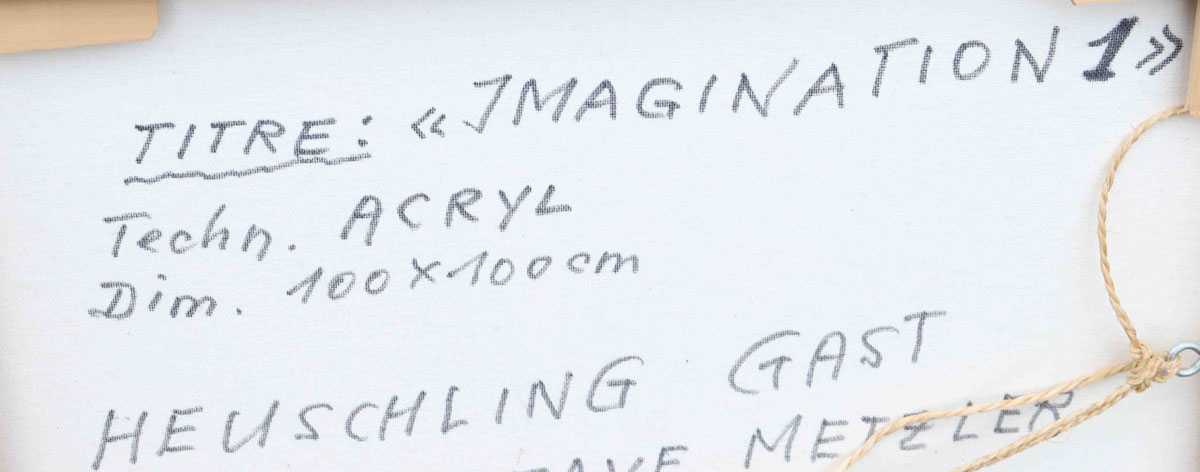 TITRE: «IMAGINATION 1»
Techn. ACRYL
Dim. 100x100cm
HEUSCHLING GAST
METZLER